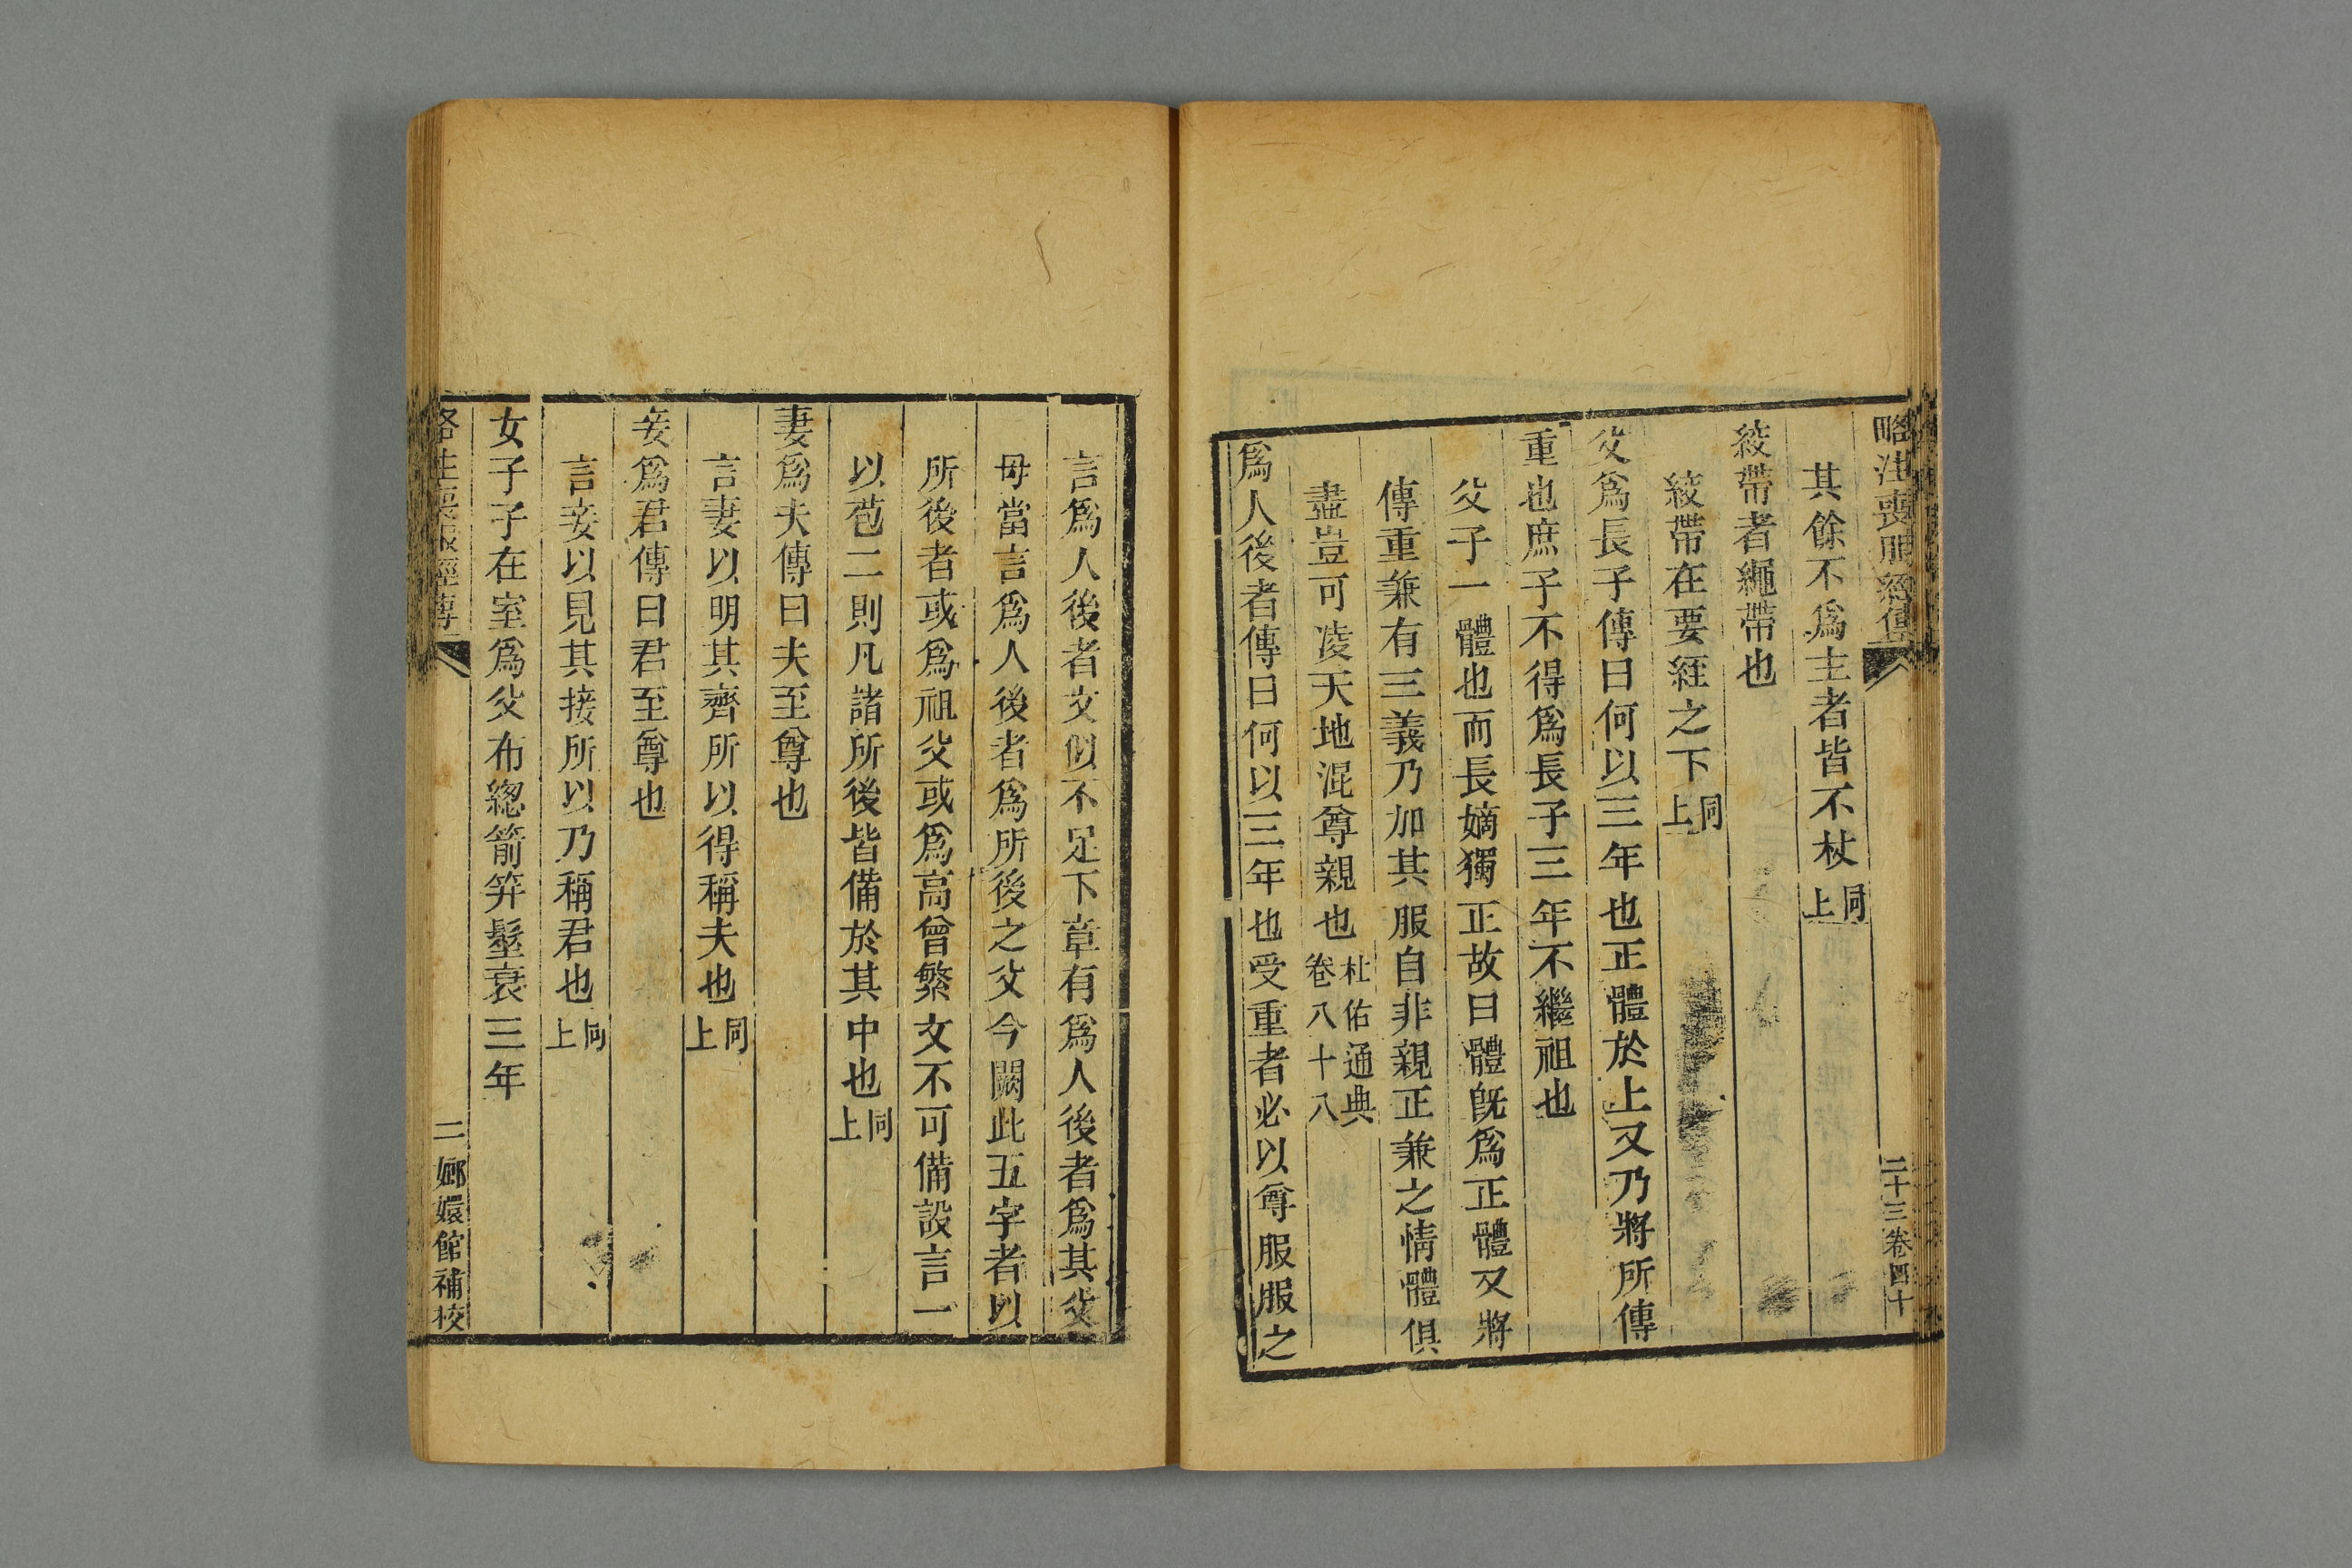 略注喪服經傳
二十三卷四十
其餘不爲主者皆不杖同上
絞帶者繩帶也
絞帶在要絰之下同上
父爲長子傳曰何以三年也正體於上又乃將所傳
重也庶子不得爲長子三年不繼祖也
父子一體也而長嫡獨正故曰體旣爲正體又將
傳重兼有三義乃加其服自非親正兼之情體俱
盡豈可凌天地混尊親也杜佑通典卷八十八
爲人後者傳曰何以三年也受重者必以尊服服之
言爲人後者文似不足下章有爲人後者爲其父
母當言爲人後者爲所後之父今闕此五字者以
所後者或爲祖父或爲高曾繁文不可備設言一
以苞二則凡諸所後皆備於其中也同上
妻爲夫傳曰夫至尊也
言妻以明其齊所以得稱夫也同上
妾爲君傳曰君至尊也
言妾以見其接所以乃稱君也同上
女子子在室爲父布總箭笄髽衰三年
略注喪服經傳
二
嫏嬛館補校